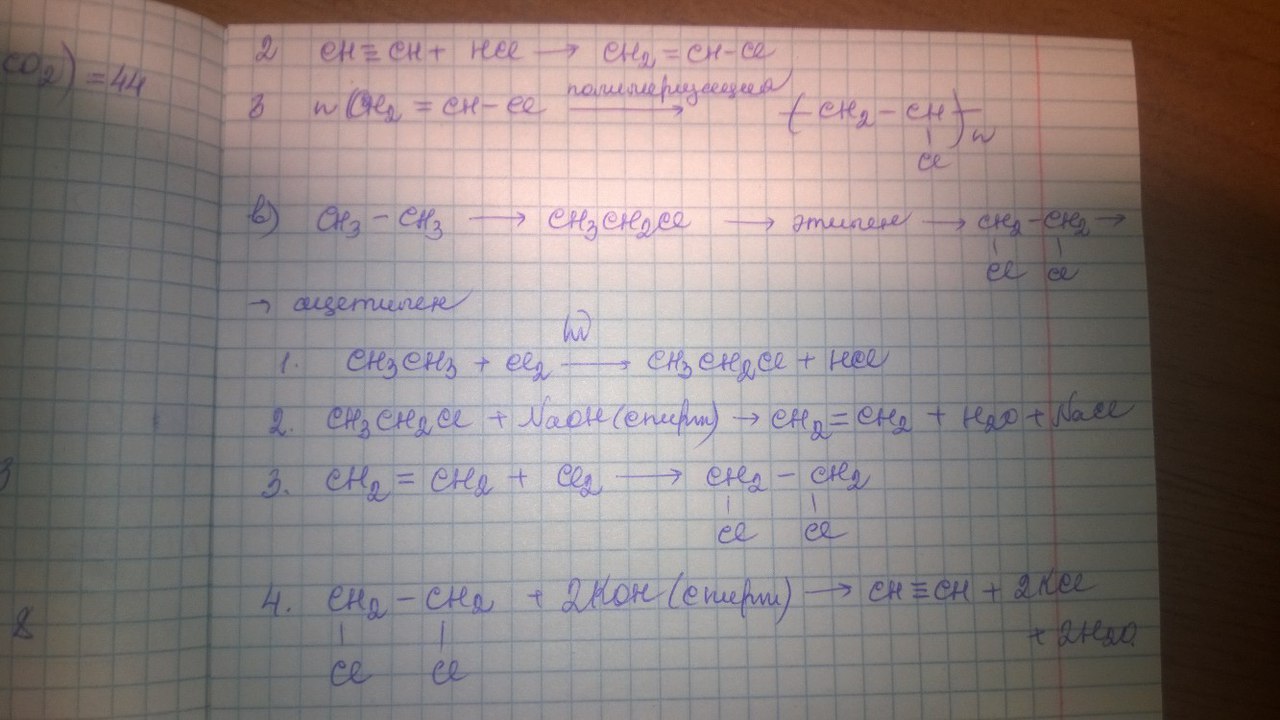 CO₂) = 44
2 CH≡CH + HCl → CH₂=CH-Cl
3 n CH₂=CH-Cl полимеризация → (-CH₂-CH-)n
Cl
в) CH₃-CH₃ → CH₃CH₂Cl → этилен → CH₂-CH₂ →
Cl Cl
→ ацетилен
hν
1. CH₃CH₃ + Cl₂ → CH₃CH₂Cl + HCl
2. CH₃CH₂Cl + NaOH (спирт) → CH₂=CH₂ + H₂O + NaCl
3. CH₂=CH₂ + Cl₂ → CH₂-CH₂
Cl Cl
4. CH₂-CH₂ + 2KOH (спирт) → CH≡CH + 2KCl
+ 2H₂O
Cl Cl
8